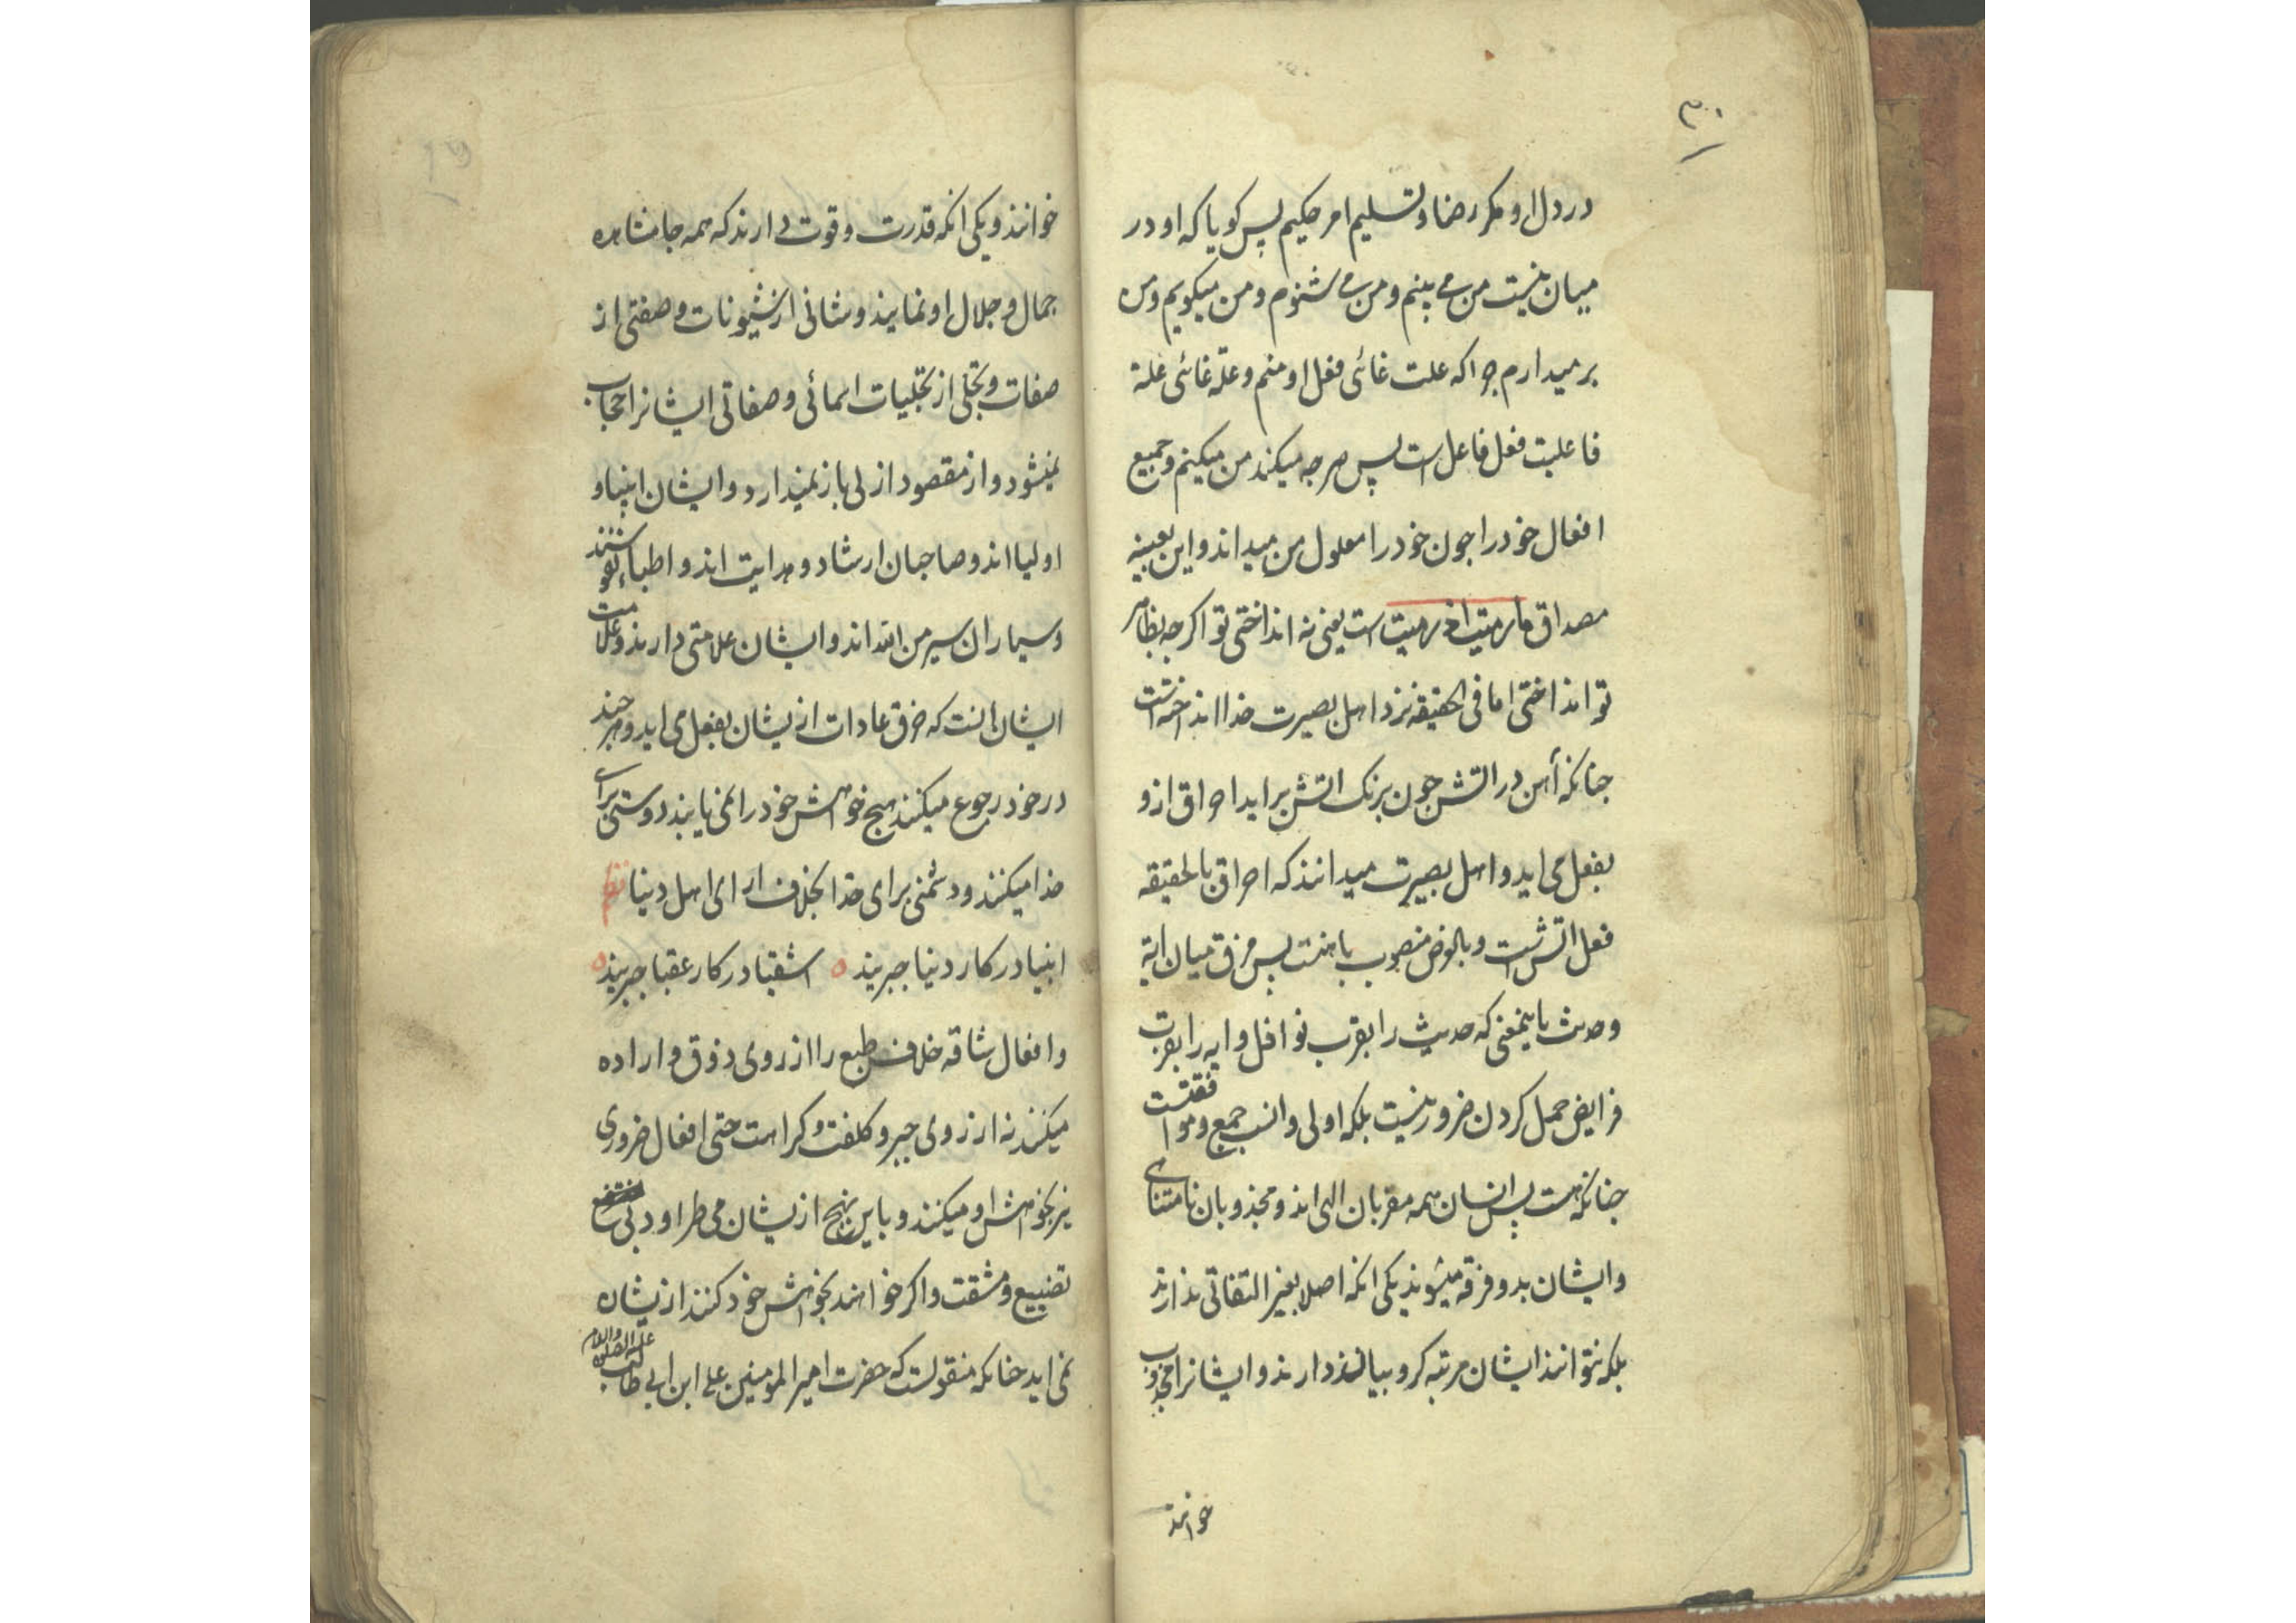 ۳۰
در دل او مکر رضا و تسلیم امر حکیم پس کویا که او در
میان نیست من می بینم و من می شنوم و من میکویم و من
برمیدارم چرا که علت غائی فعل او منم و علة غائی علة
فاعلیت فعل فاعل است پس هرچه میکند من میکنم و جمیع
افعال خود را چون خود را معلول من میداند و این بعینه
مصداق ما رمیت اذ رمیت است یعنی نه انداختی تو اکرچه بظاهر
تو انداختی اما فی الحقیقه نزد اهل بصیرت خدا انداختست
چنانکه آهن در اتش چون برنک اتش براید احراق ازو
بفعل می اید و اهل بصیرت میدانند که احراق بالحقیقه
فعل اتش است و بالعرض منصوب باهنست پس فرق میان ایة
و حدیث باینمعنی که حدیث را بقرب نوافل و ایه را بقرب
فرایض حمل کردن ضرور نیست بلکه اولی و انسب جمع و موافقتست
چنانکه هست پس انسان همه مقربان الهی اند و مجذوبان نامتناهی
و ایشان بدو فرقه میشوند یکی انکه اصلا بغیر التفاتی ندارند
بلکه نتوانند ایشان مرتبه کروبیان دارند و ایشانرا مجذوب
خوانند
خوانند و یکی انکه قدرت و قوت دارند که همه جا مشاهده
جمال و جلال او نمایند و شانی از شیونات و صفتی از
صفات و تجلی از تجلیات اسمائی و صفاتی ایشانرا حجاب
نمیشود و از مقصود ازلی باز نمیدارد و ایشان انبیا و
اولیا اند و صاحبان ارشاد و هدایت اند و اطباء نفوشند
و سیماران سیر من الله اند و ایشان علامتی دارند و علامت
ایشان انست که خرق عادات ازیشان بفعل می اید و هرچند
در خود رجوع میکنند هیچ خواهش خود را نمی یابند دوستی برای
خدا میکنند و دشمنی برای خدا بخلاف ارای اهل دنیا نظم
انبیا در کار دنیا جبریند ه اشقیا در کار عقبا جبریند ه
و افعال شاقه خلاف طبع را از روی ذوق و اراده
میکنند نه از روی جبر و کلفت و کراهت حتی افعال ضروری
نیز بخواهش او میکنند و باین نهج ازیشان می طراود بی
تضییع و مشقت و اکر خواهند بخواهش خود کنند ازیشان
نمی اید چنانکه منقولست که حضرت امیر المومنین علی ابن ابی طالب علیه الصلوة والسلام